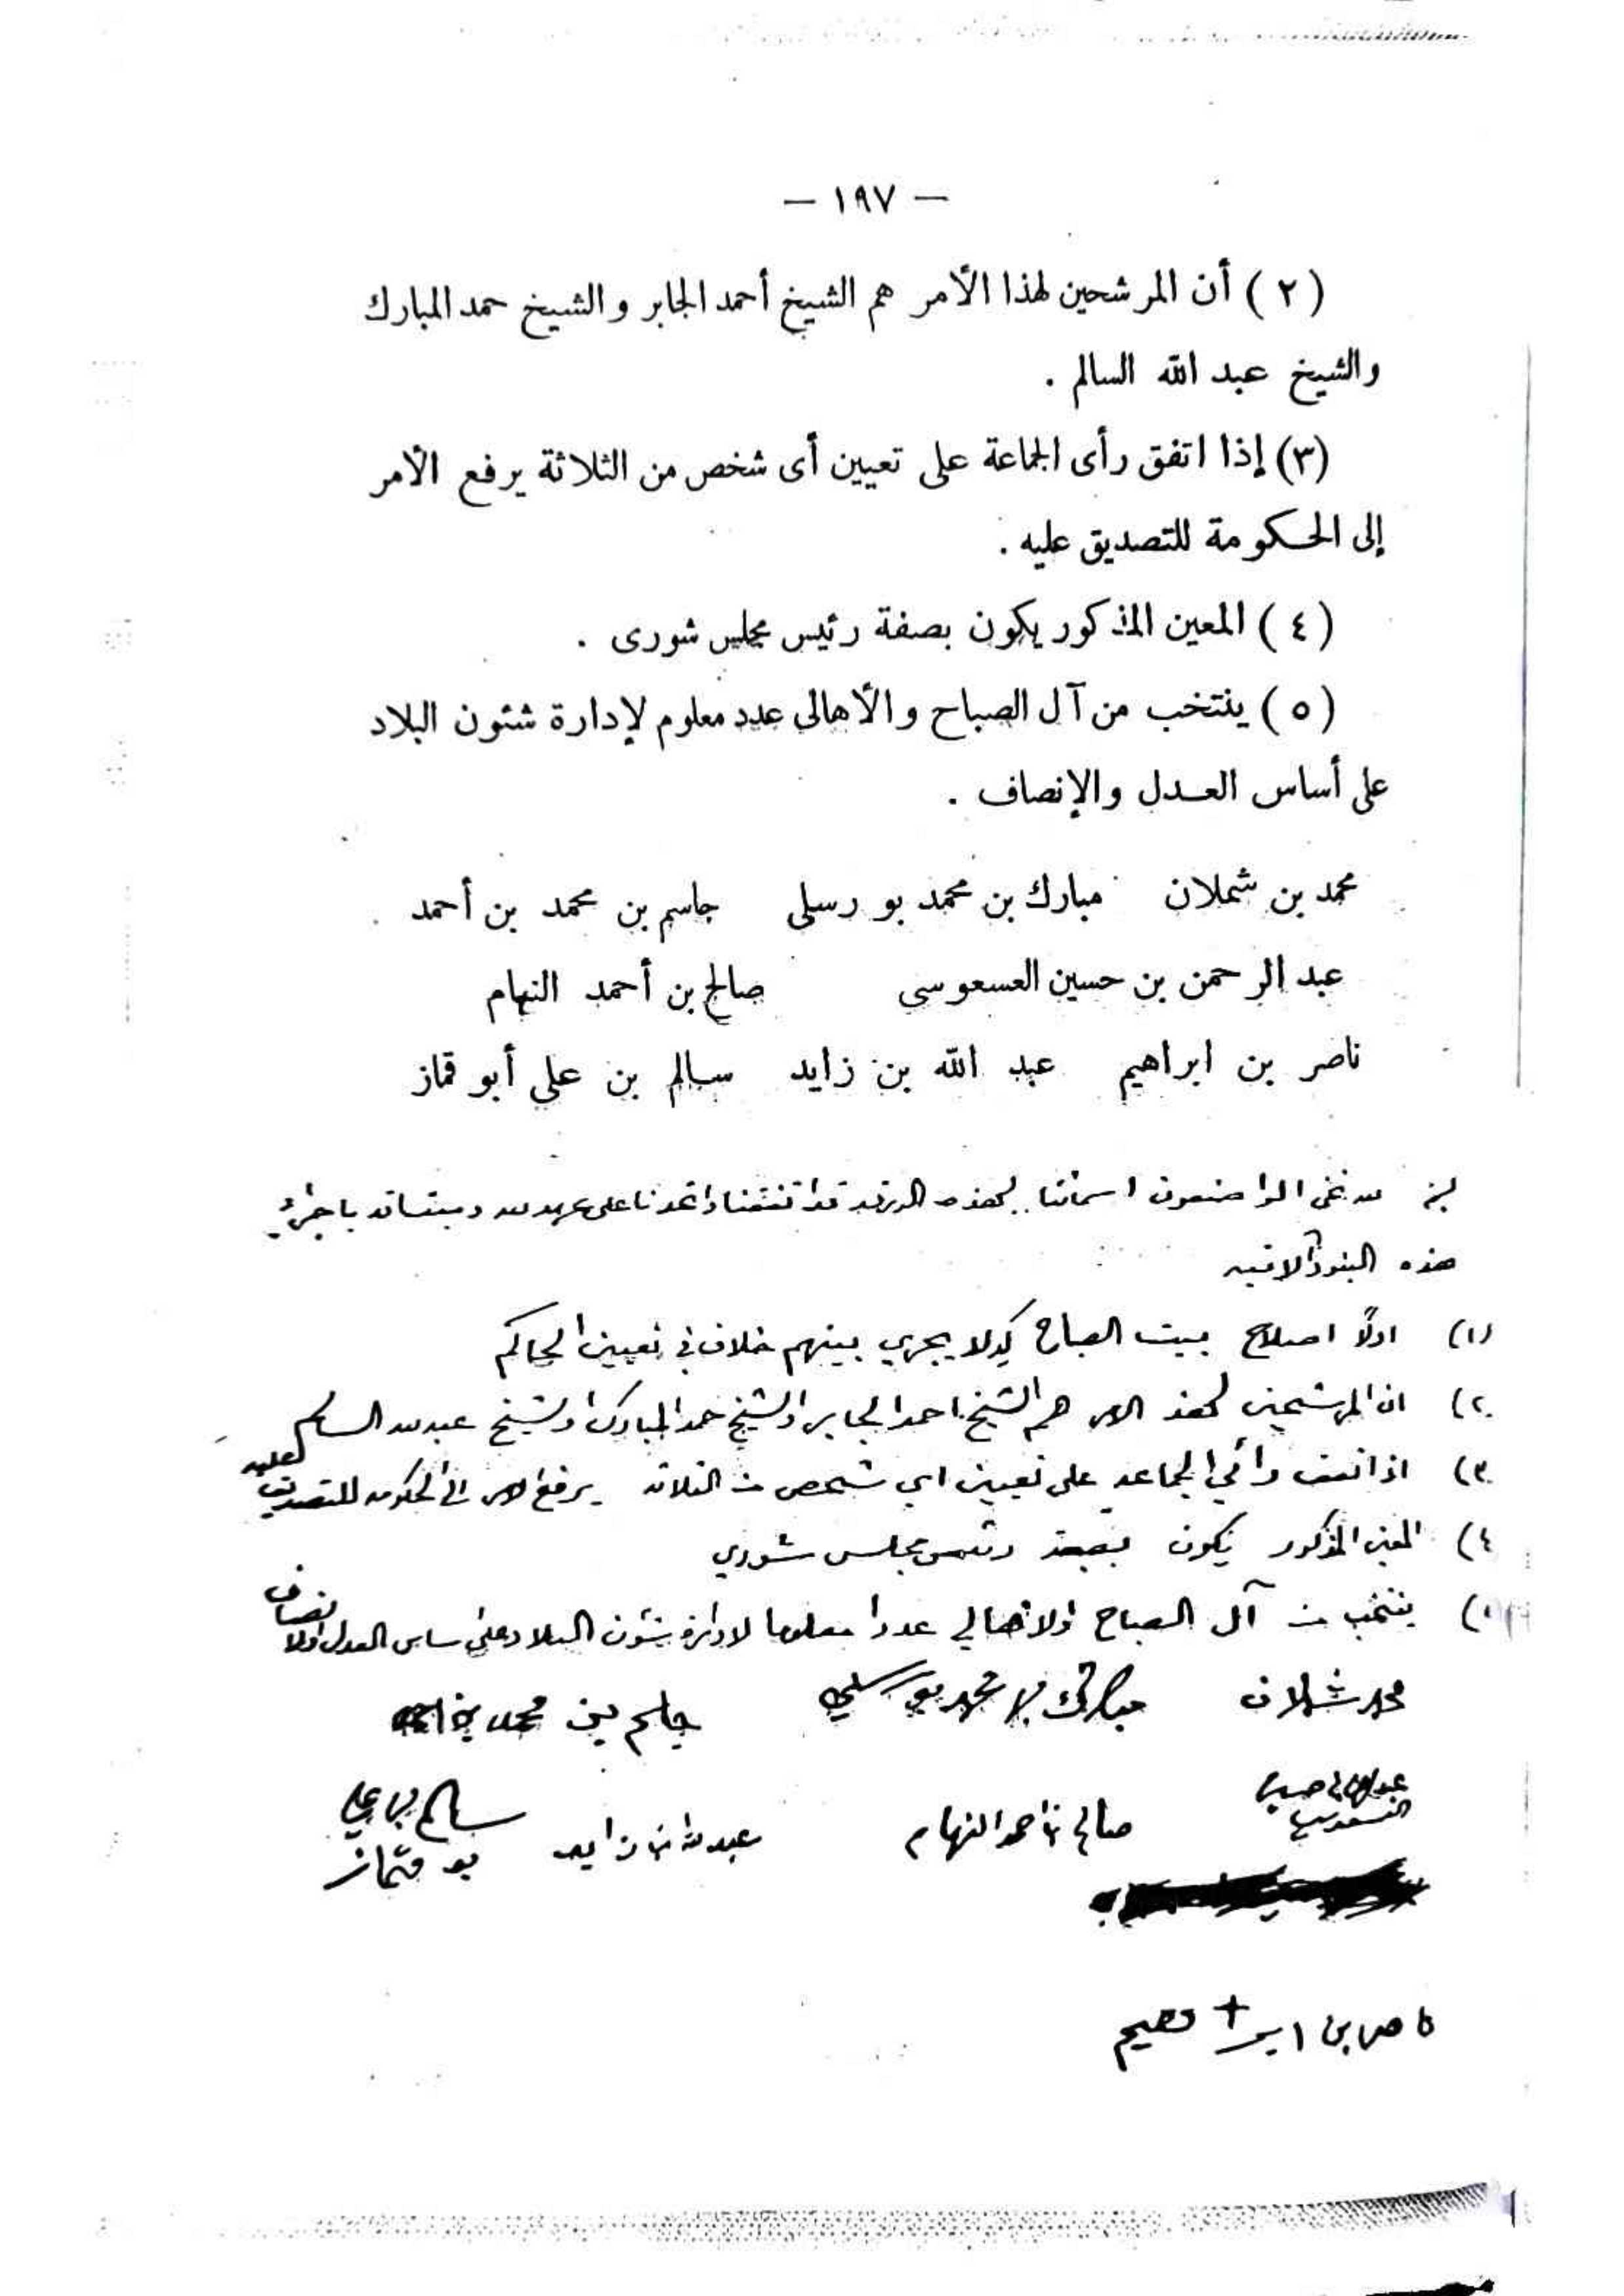 — ١٩٧ —
( ٢ ) أن المرشحين لهذا الأمر هم الشيخ أحمد الجابر والشيخ حمد المبارك
والشيخ عبد الله السالم .
(٣) إذا اتفق رأى الجماعة على تعيين أى شخص من الثلاثة يرفع الأمر
إلى الحكومة للتصديق عليه .
( ٤ ) المعين المذكور يكون بصفة رئيس مجلس شورى .
( ٥ ) ينتخب من آل الصباح والأهالى عدد معلوم لإدارة شئون البلاد
على أساس العدل والإنصاف .
محمد بن شملان مبارك بن محمد بو رسلى جاسم بن محمد بن أحمد
عبد الرحمن بن حسين العسعوسى صالح بن أحمد النهام
ناصر بن ابراهيم عبد الله بن زايد سالم بن على أبو قماز
نحن الواضعون اسمائنا بهذه الورقه قد اتفقنا واتحدنا على عهد الله وميثاقه باجرائ
هذه البنود الاتيه
(١) اولاً اصلاح بيت الصباح كيلا يجري بينهم خلاف في تعيين الحاكم
٢) ان المرشحين لهذ الامر هم الشيخ احمد الجابر او الشيخ حمد المبارك او الشيخ عبدالله السالم
٣) اذا اتفق رائي الجماعه على تعيين اي شخص من الثلاثه يرفع الامر الى الحكومه للتصديق عليه
٤) المعين المذكور يكون بصفة رئيس مجلس شوري
ينتخب من آل الصباح والاهالي عددا معلوما لادارة شئون البلاد على اساس العدل والانصاف
محمد شملان مبارك بن محمد بورسلي جاسم بن محمد بن احمد
صالح بن احمد النهام عبدالله بن زايد سالم بن علي
بو قماز
ناصر بن ابراهيم